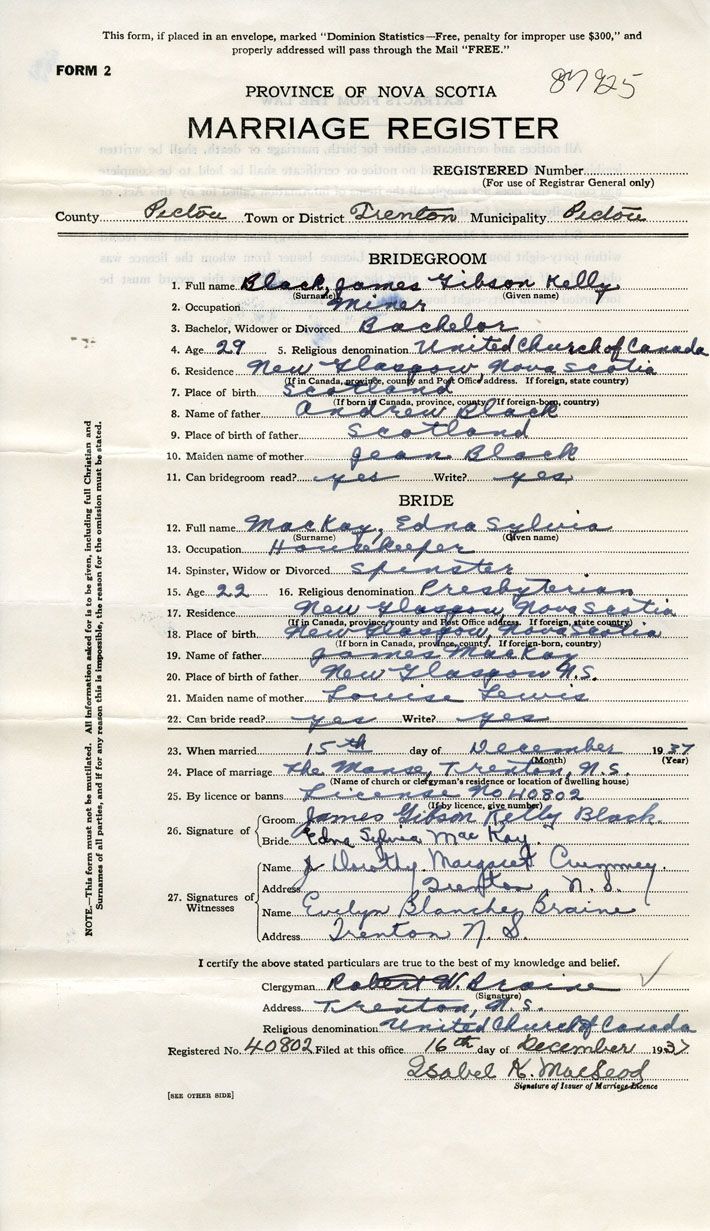 This form, if placed in an envelope, marked "Dominion Statistics—Free, penalty for improper use $300," and
properly addressed will pass through the Mail "FREE."
FORM 2
87925
PROVINCE OF NOVA SCOTIA
MARRIAGE REGISTER
REGISTERED Number
(For use of Registrar General only)
County Pictou Town or District Trenton Municipality Pictou
BRIDEGROOM
1. Full name Black, James Gibson Kelly
(Surname) (Given name)
2. Occupation Miner
3. Bachelor, Widower or Divorced Bachelor
4. Age 29 5. Religious denomination United Church of Canada
6. Residence New Glasgow, Nova Scotia
(If in Canada, province, county and Post Office address. If foreign, state country)
7. Place of birth Scotland
(If born in Canada, province, county. If foreign-born, country)
8. Name of father Andrew Black
9. Place of birth of father Scotland
10. Maiden name of mother Jean Black
11. Can bridegroom read? yes Write? yes
BRIDE
12. Full name MacKay, Edna Sylvia
(Surname) (Given name)
13. Occupation Housekeeper
14. Spinster, Widow or Divorced Spinster
15. Age 22 16. Religious denomination Presbyterian
17. Residence New Glasgow, Nova Scotia
(If in Canada, province county and Post Office address. If foreign, state country)
18. Place of birth New Glasgow, Nova Scotia
(If born in Canada, province, county. If foreign-born, country)
19. Name of father James MacKay
20. Place of birth of father New Glasgow N.S.
21. Maiden name of mother Louise Lewis
22. Can bride read? yes Write? yes
23. When married 15th day of December 1937
(Month) (Year)
24. Place of marriage The Manse, Trenton, N.S.
(Name of church or clergyman's residence or location of dwelling house)
25. By licence or banns License No 40802
(If by licence, give number)
26. Signature of
Groom James Gibson Kelly Black
Bride Edna Sylvia MacKay.
27. Signatures of Witnesses
Name Dorothy Margaret Crummey.
Address Trenton N. S.
Name Evelyn Blanche Braine
Address Trenton N. S.
I certify the above stated particulars are true to the best of my knowledge and belief.
Clergyman Robert W. Braine
(Signature)
Address Trenton, N.S.
Religious denomination United Church of Canada
Registered No. 40802 Filed at this office 16th day of December 1937
Isabel K. MacLeod
Signature of Issuer of Marriage Licence
[SEE OTHER SIDE]
NOTE.—This form must not be mutilated. All information asked for is to be given, including full Christian and
Surnames of all parties, and if for any reason this is impossible, the reason for the omission must be stated.